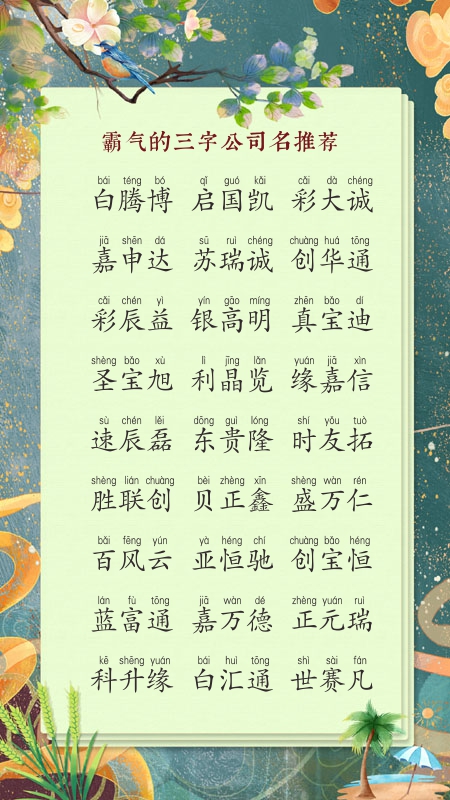 霸气的三字公司名推荐
bái téng bó qǐ guó kǎi cǎi dà chéng
白腾博 启国凯 彩大诚
jiā shēn dá sū ruì chéng chuàng huá tōng
嘉申达 苏瑞诚 创华通
cǎi chén yì yín gāo míng zhēn bǎo dí
彩辰益 银高明 真宝迪
shèng bǎo xù lì jīng lǎn yuán jiā xìn
圣宝旭 利晶览 缘嘉信
sù chén lěi dōng guì lóng shí yǒu tuò
速辰磊 东贵隆 时友拓
shèng lián chuàng bèi zhèng xīn shèng wàn rén
胜联创 贝正鑫 盛万仁
bǎi fēng yún yà héng chí chuàng bǎo héng
百风云 亚恒驰 创宝恒
lán fù tōng jiā wàn dé zhèng yuán ruì
蓝富通 嘉万德 正元瑞
kē shēng yuán bái huì tōng shì sài fán
科升缘 白汇通 世赛凡